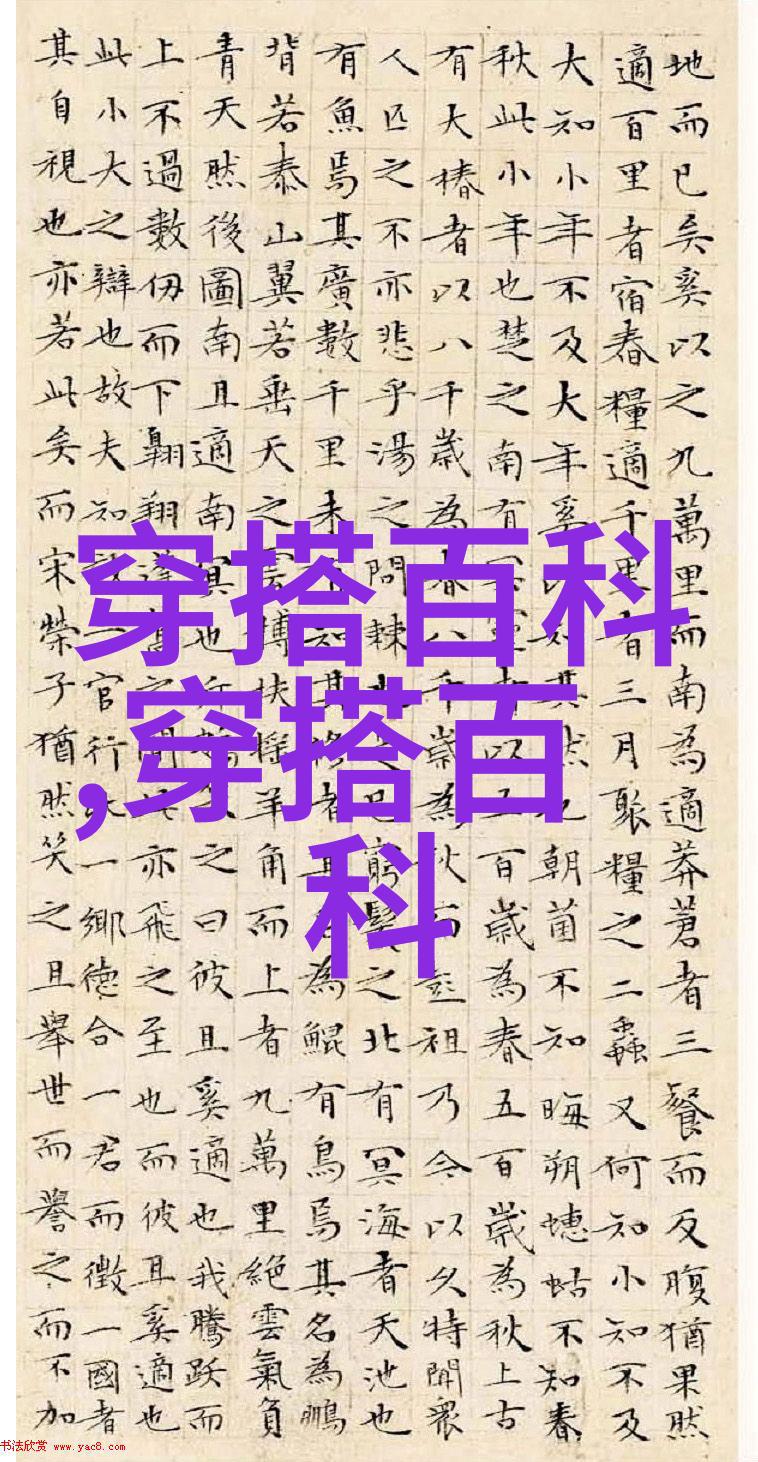 地而已矣奚以之九萬里而南為適莽蒼者三餐而反腹猶果然
適百里者宿舂糧適千里者三月聚糧之二蟲又何知小知不及
大知小年不及大年奚以知其然也朝菌不知晦朔蟪蛄不知春
秋此小年也楚之南有冥靈者以五百歲為春五百歲為秋上古
有大椿者以八千歲為春八千歲為秋而彭祖乃今以久特聞眾
人匹之不亦悲乎湯之問棘也是已窮髮之北有冥海者天池也
有魚焉其廣數千里未有知其脩者其名為鯤有鳥焉其名為鵬
背若泰山翼若垂天之雲摶扶搖羊角而上者九萬里絕雲氣負
青天然後圖南且適南冥也斥笑之曰彼且奚適也我騰躍而
上不過數仞而下翱翔蓬蒿之間此亦飛之至也而彼且奚適也
此小大之辯也故夫知效一官行比一鄉德合一君而徵一國者
其自視也亦若此矣而宋榮子猶然笑之且舉世而譽之而不加
穿搭百科
,穿搭百
科
书法欣赏 www.yac8.com